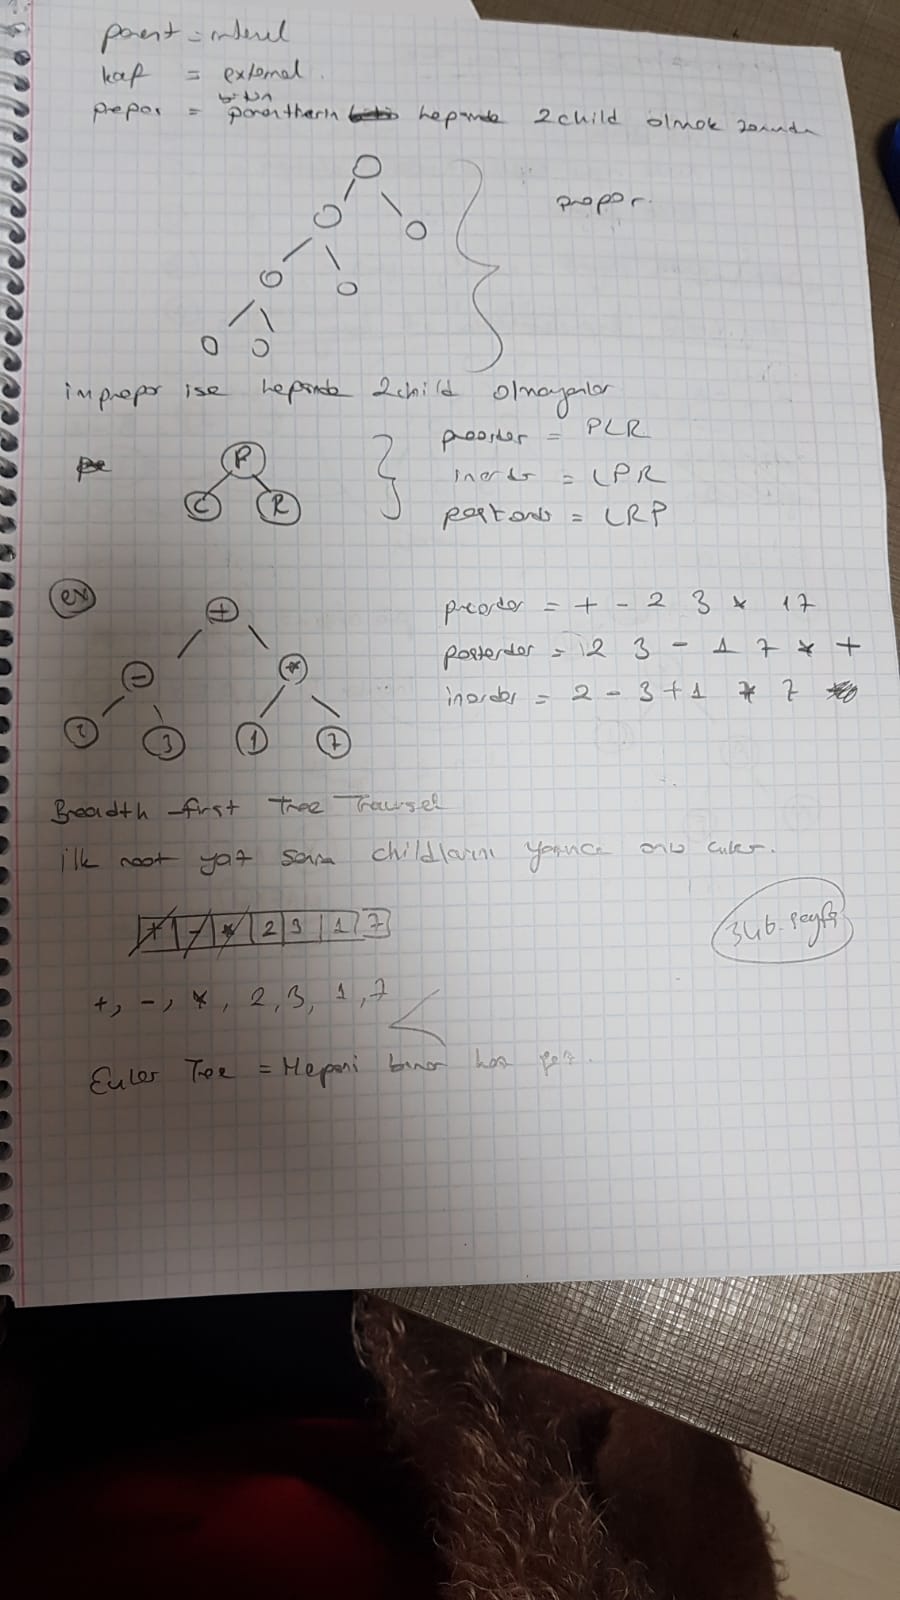 parent = internal
= external.
bütün
propor = parentların hepsinde 2 child olmak zorunda
propor.
impropor ise hepsinde 2 child olmayanlar
P
L R
preorder = PLR
inorder = LPR
postorder = LRP
ex
+
- *
2 3 1 7
preorder = + - 2 3 * 1 7
postorder = 2 3 - 1 7 * +
inorder = 2 - 3 + 1 * 7
Breadth-first Tree Traversel
ilk root yaz sonra childlarını onu
+ - * 2 3 1 7
346. sayfa
+, -, *, 2, 3, 1, 7
Euler Tree = Hepsini